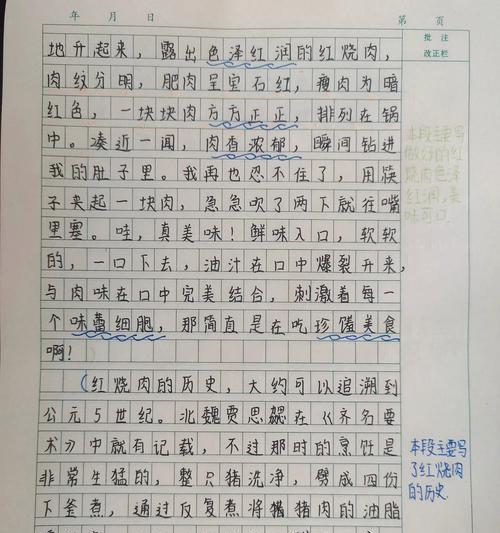 年 月 日
第 页
批 注
改正栏
地升起来，露出色泽红润的红烧肉，
肉纹分明，肥肉呈宝石红，瘦肉为暗
红色，一块块肉方方正正，排列在锅
中。凑近一闻，肉有浓郁，瞬间钻进
我的肚子里。我再也忍不住了，用筷
子夹起一块肉，急急吹了两下就往嘴
里塞。哇，真美味！鲜味入口，软软
的，一口下去，油汁在口中爆裂升来，
与肉味在口中完美结合，刺激着每一
个味蕾细胞，那简直是在吃珍馐美食
啊！
（红烧肉的历史，大约可以追溯到
公元5世纪。北魏贾思勰在《齐名要
术》中就有记载，不过那时的烹饪是
非常生猛的，整只猪洗净，劈成四份
下釜煮，通过反复煮将猪肉的油脂
本段主要写
做好的红
烧肉色泽
红润，美
味可口
本段主要写
了红烧肉
的历史